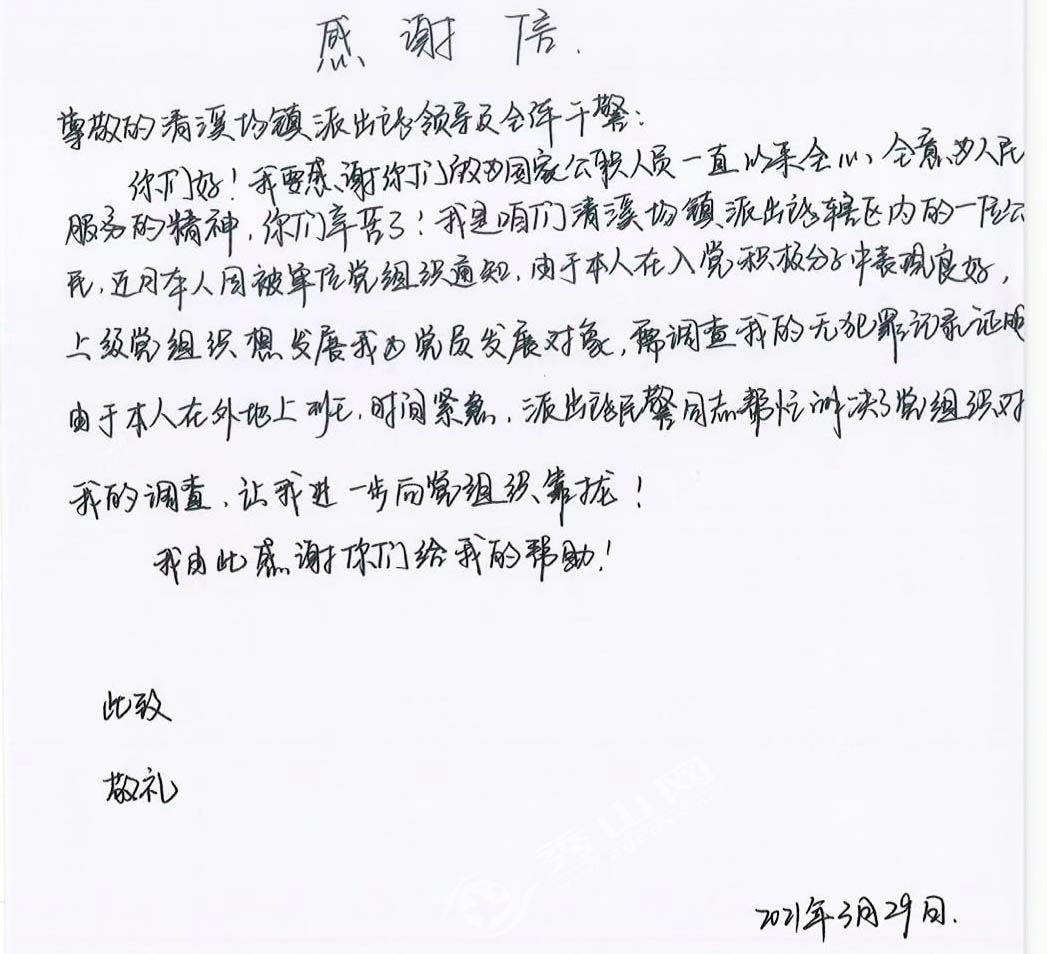 感谢信.
尊敬的清溪场镇派出所领导及全体干警:
你们好！我要感谢你们做为国家公职人员一直以来全心、全意为人民
服务的精神,你们辛苦了！我是咱们清溪场镇派出所辖区内的一位公
民,近日本人因被单位党组织通知,由于本人在入党积极分子中表现良好,
上级党组织想发展我为党员发展对象,需调查我的无犯罪记录证明
由于本人在外地上班,时间紧急,派出所民警同志帮忙解决了党组织对
我的调查,让我进一步向党组织靠拢！
我由此感谢你们给我的帮助！
此致
敬礼
秀山网
2021年3月29日.